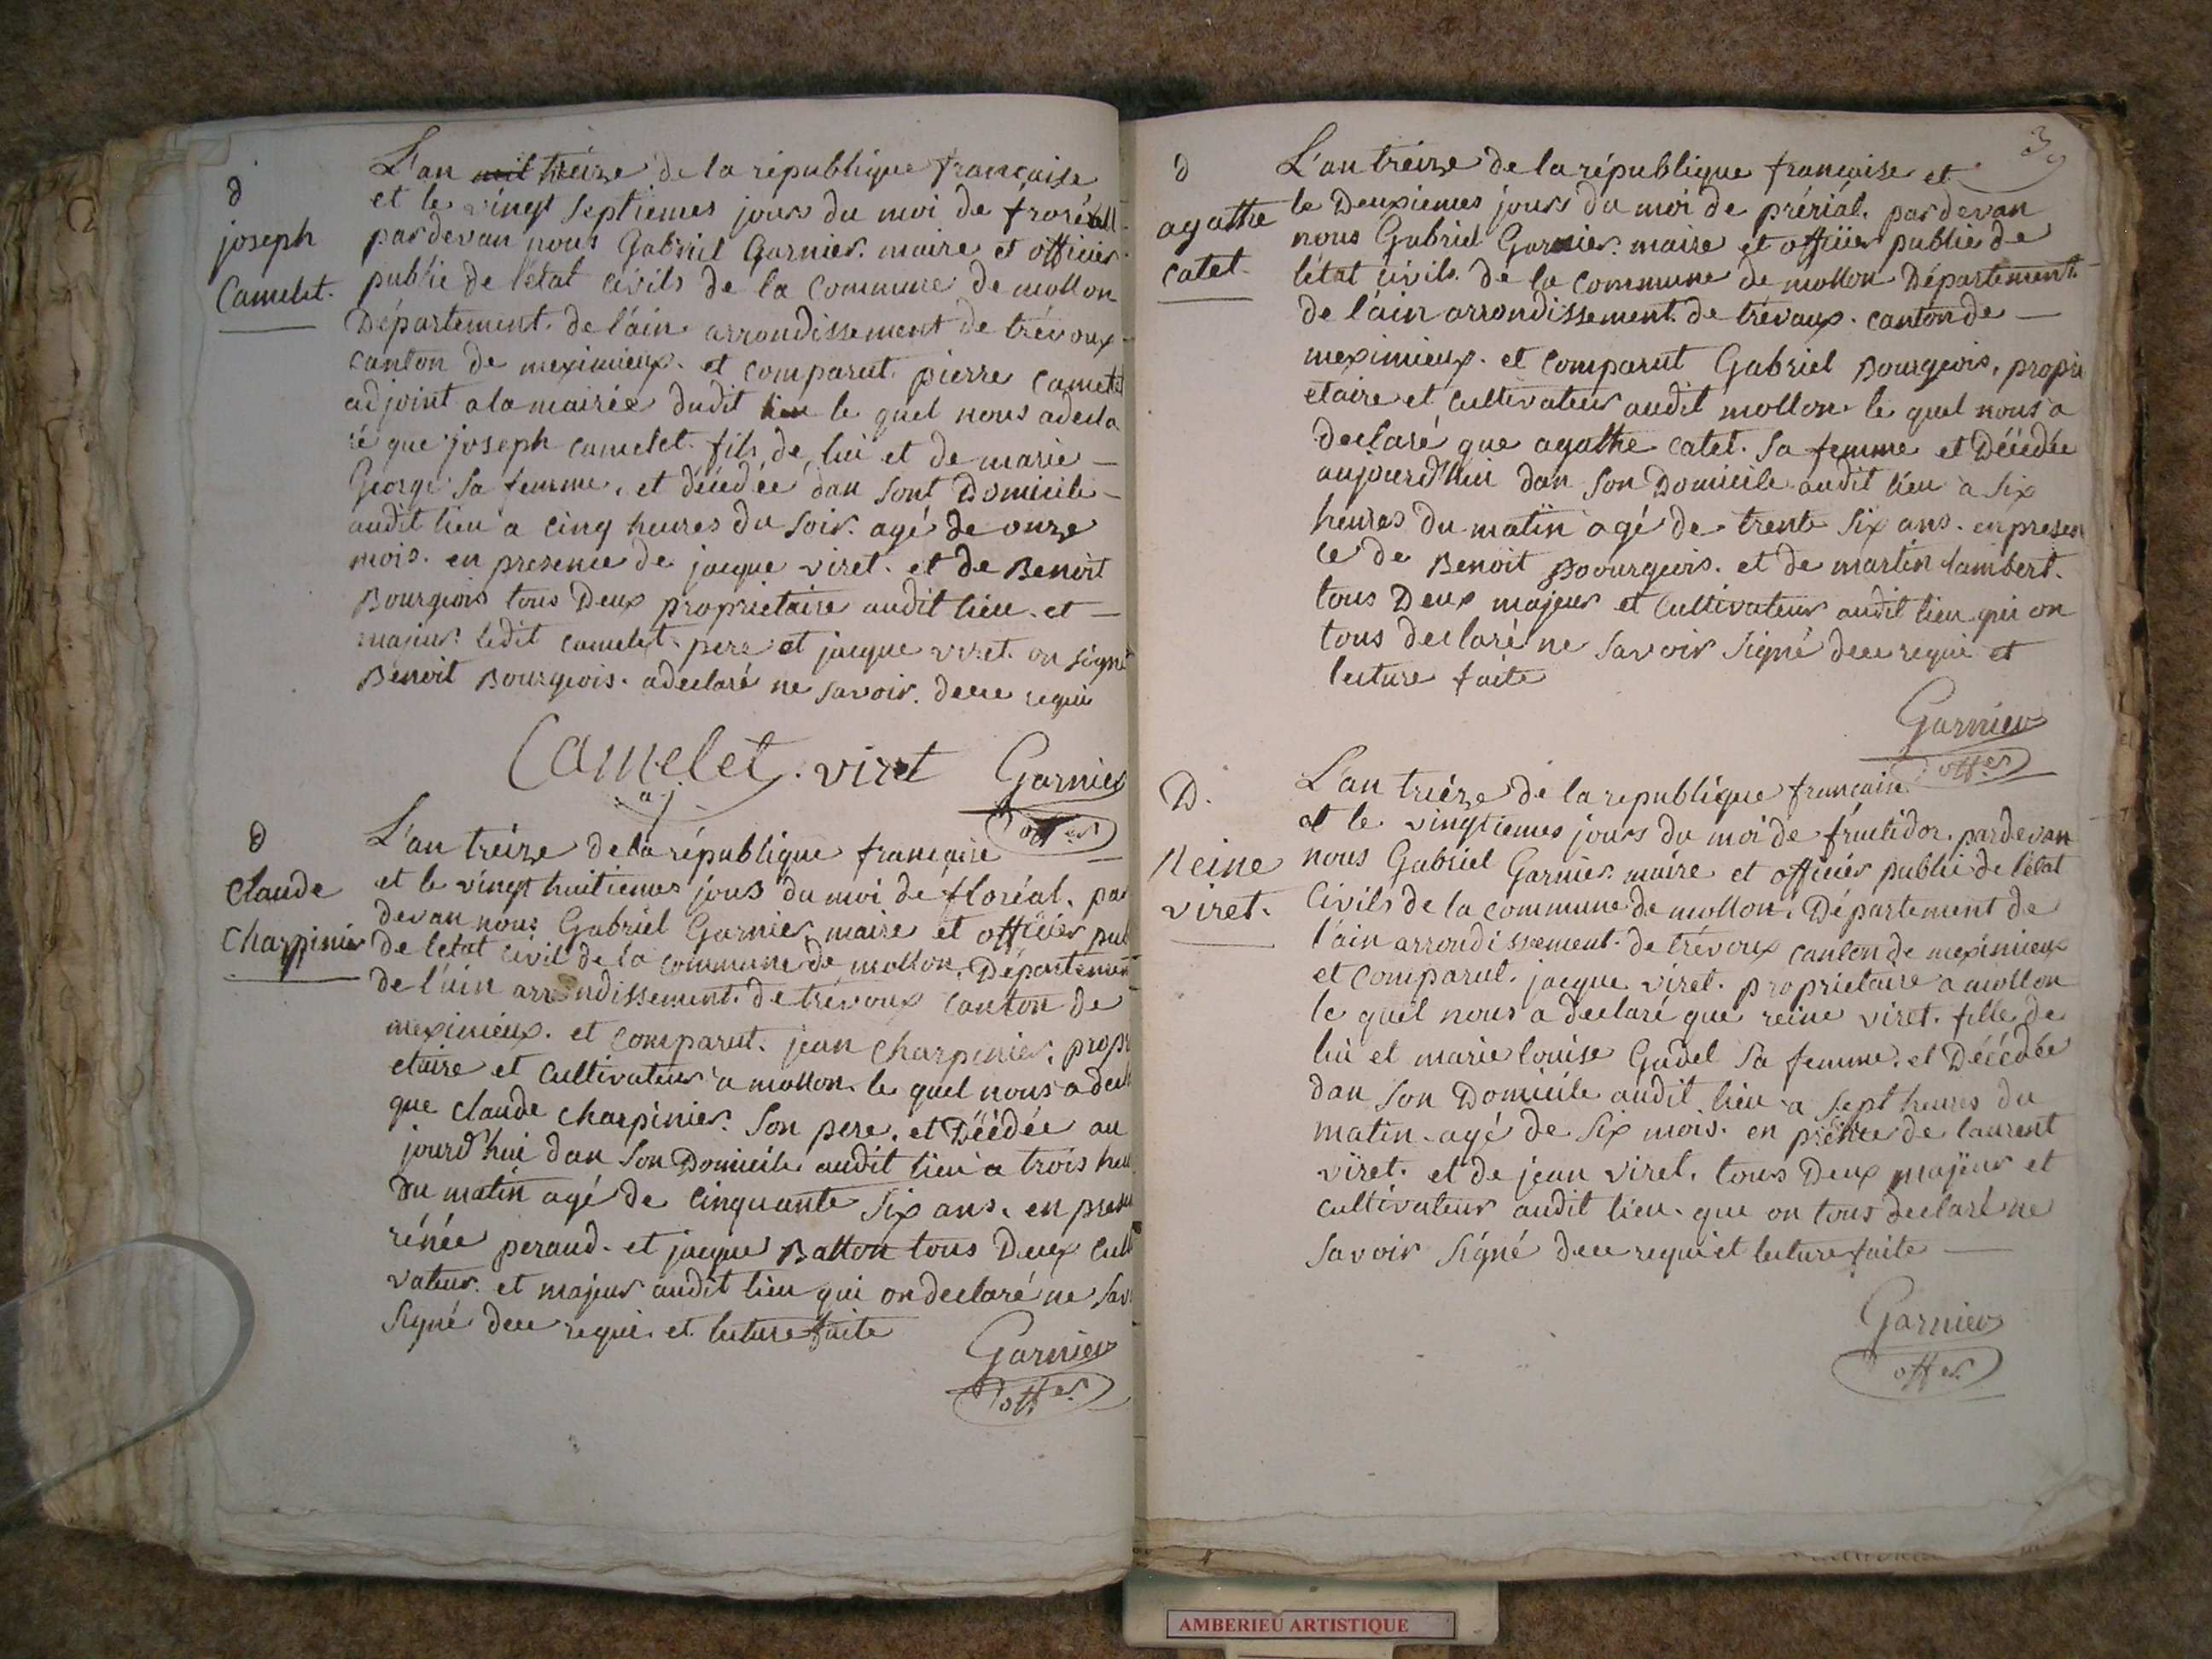 d
joseph
Camelet.
L'an mil treize de la république française
et le vingt septiemes jours du moi de
pardevan nous Gabriel Garnier. maire et officier
publie de l'état civils de la Commune de mollon
Département. de l'ain arrondissement de trévoux
canton de meximieux. et comparut. pierre Camelet
adjoint a la mairie dudit lieu le quel nous a decla
ré que joseph camelet. fils de lui et de marie —
George sa femme, et décédée dan sont Domicile —
audit lieu a cinq heures du soir. agé de onze
mois. en presence de jacque viret. et de Benoit
Bourgeois tous Deux proprietaire audit lieu. et —
majeur. ledit camelet pere et jacque viret. on signé
Benoit Bourgeois. a declaré ne savoir. dece requi
Camelet. viret Garnier
aj
offer
d
Claude
Charpinier
L'an treize de la république française
et le vingt huitiemes jours du moi de floréal. par
devan nous Gabriel Garnier maire et officier pub
de letat civil de la commune de mollon. Département
de l'ain arrondissement. de trévoux canton de
meximieux. et comparut. jean charpinier, propri
etaire et cultivateur a mollon. le quel nous a decl
que claude charpinier. son pere. et Décédée au
jourd'hui dan son Domicile audit lieu a trois heu
du matin agé de cinquante six ans. en presen
rénée peraud. et jacque Batton tous Deux culti
vateur. et majeur audit lieu qui on declaré ne sav
signé dece requi. et lecture faite
Garnier
offer
39
d
agathe
catet.
L'an treize de la république française et
le Deuxiemes jours du moi de prérial. pardevan
nous Gabriel Garnier. maire et officier publie de
l'état civils. de la commune de mollon Département.
de l'ain arrondissement de trévaux. canton de —
meximieux. et comparut Gabriel Bourgeois, propri
etaire et cultivateur audit mollon. le quel nous a
declaré que agathe catet. sa femme et Décédée
aujourd'hui dan son Domicile audit lieu a six
heures du matin agé de trente six ans. en presen
ce de Benoit Bourgeois. et de martin lambert.
tous Deux majeur et cultivateur audit lieu qui on
tous declaré ne savoir signé dece requi et
lecture faite
Garnier
offer
D.
Reine
viret.
L'an trieze de la republique francaise
et le vingtiemes jours du moi de fructidor. pardevan
nous Gabriel Garnier maire et officier publie de l'état
Civils de la commune de mollon. Département de
l'ain arrondissement. de trévoux canton de meximieux
et comparut. jacque viret. proprietaire a mollon
le quel nous a declaré que reine viret. fille de
lui et marie louise Gudel sa femme. et Décédée
dan son Domicile audit lieu a sept heures du
matin. agé de six mois. en présence de laurent
viret. et de jean viret. tous Deux majeur et
cultivateur audit lieu. que on tous declaré ne
savoir signé dece requi et lecture faite —
Garnier
offer
AMBERIEU ARTISTIQUE